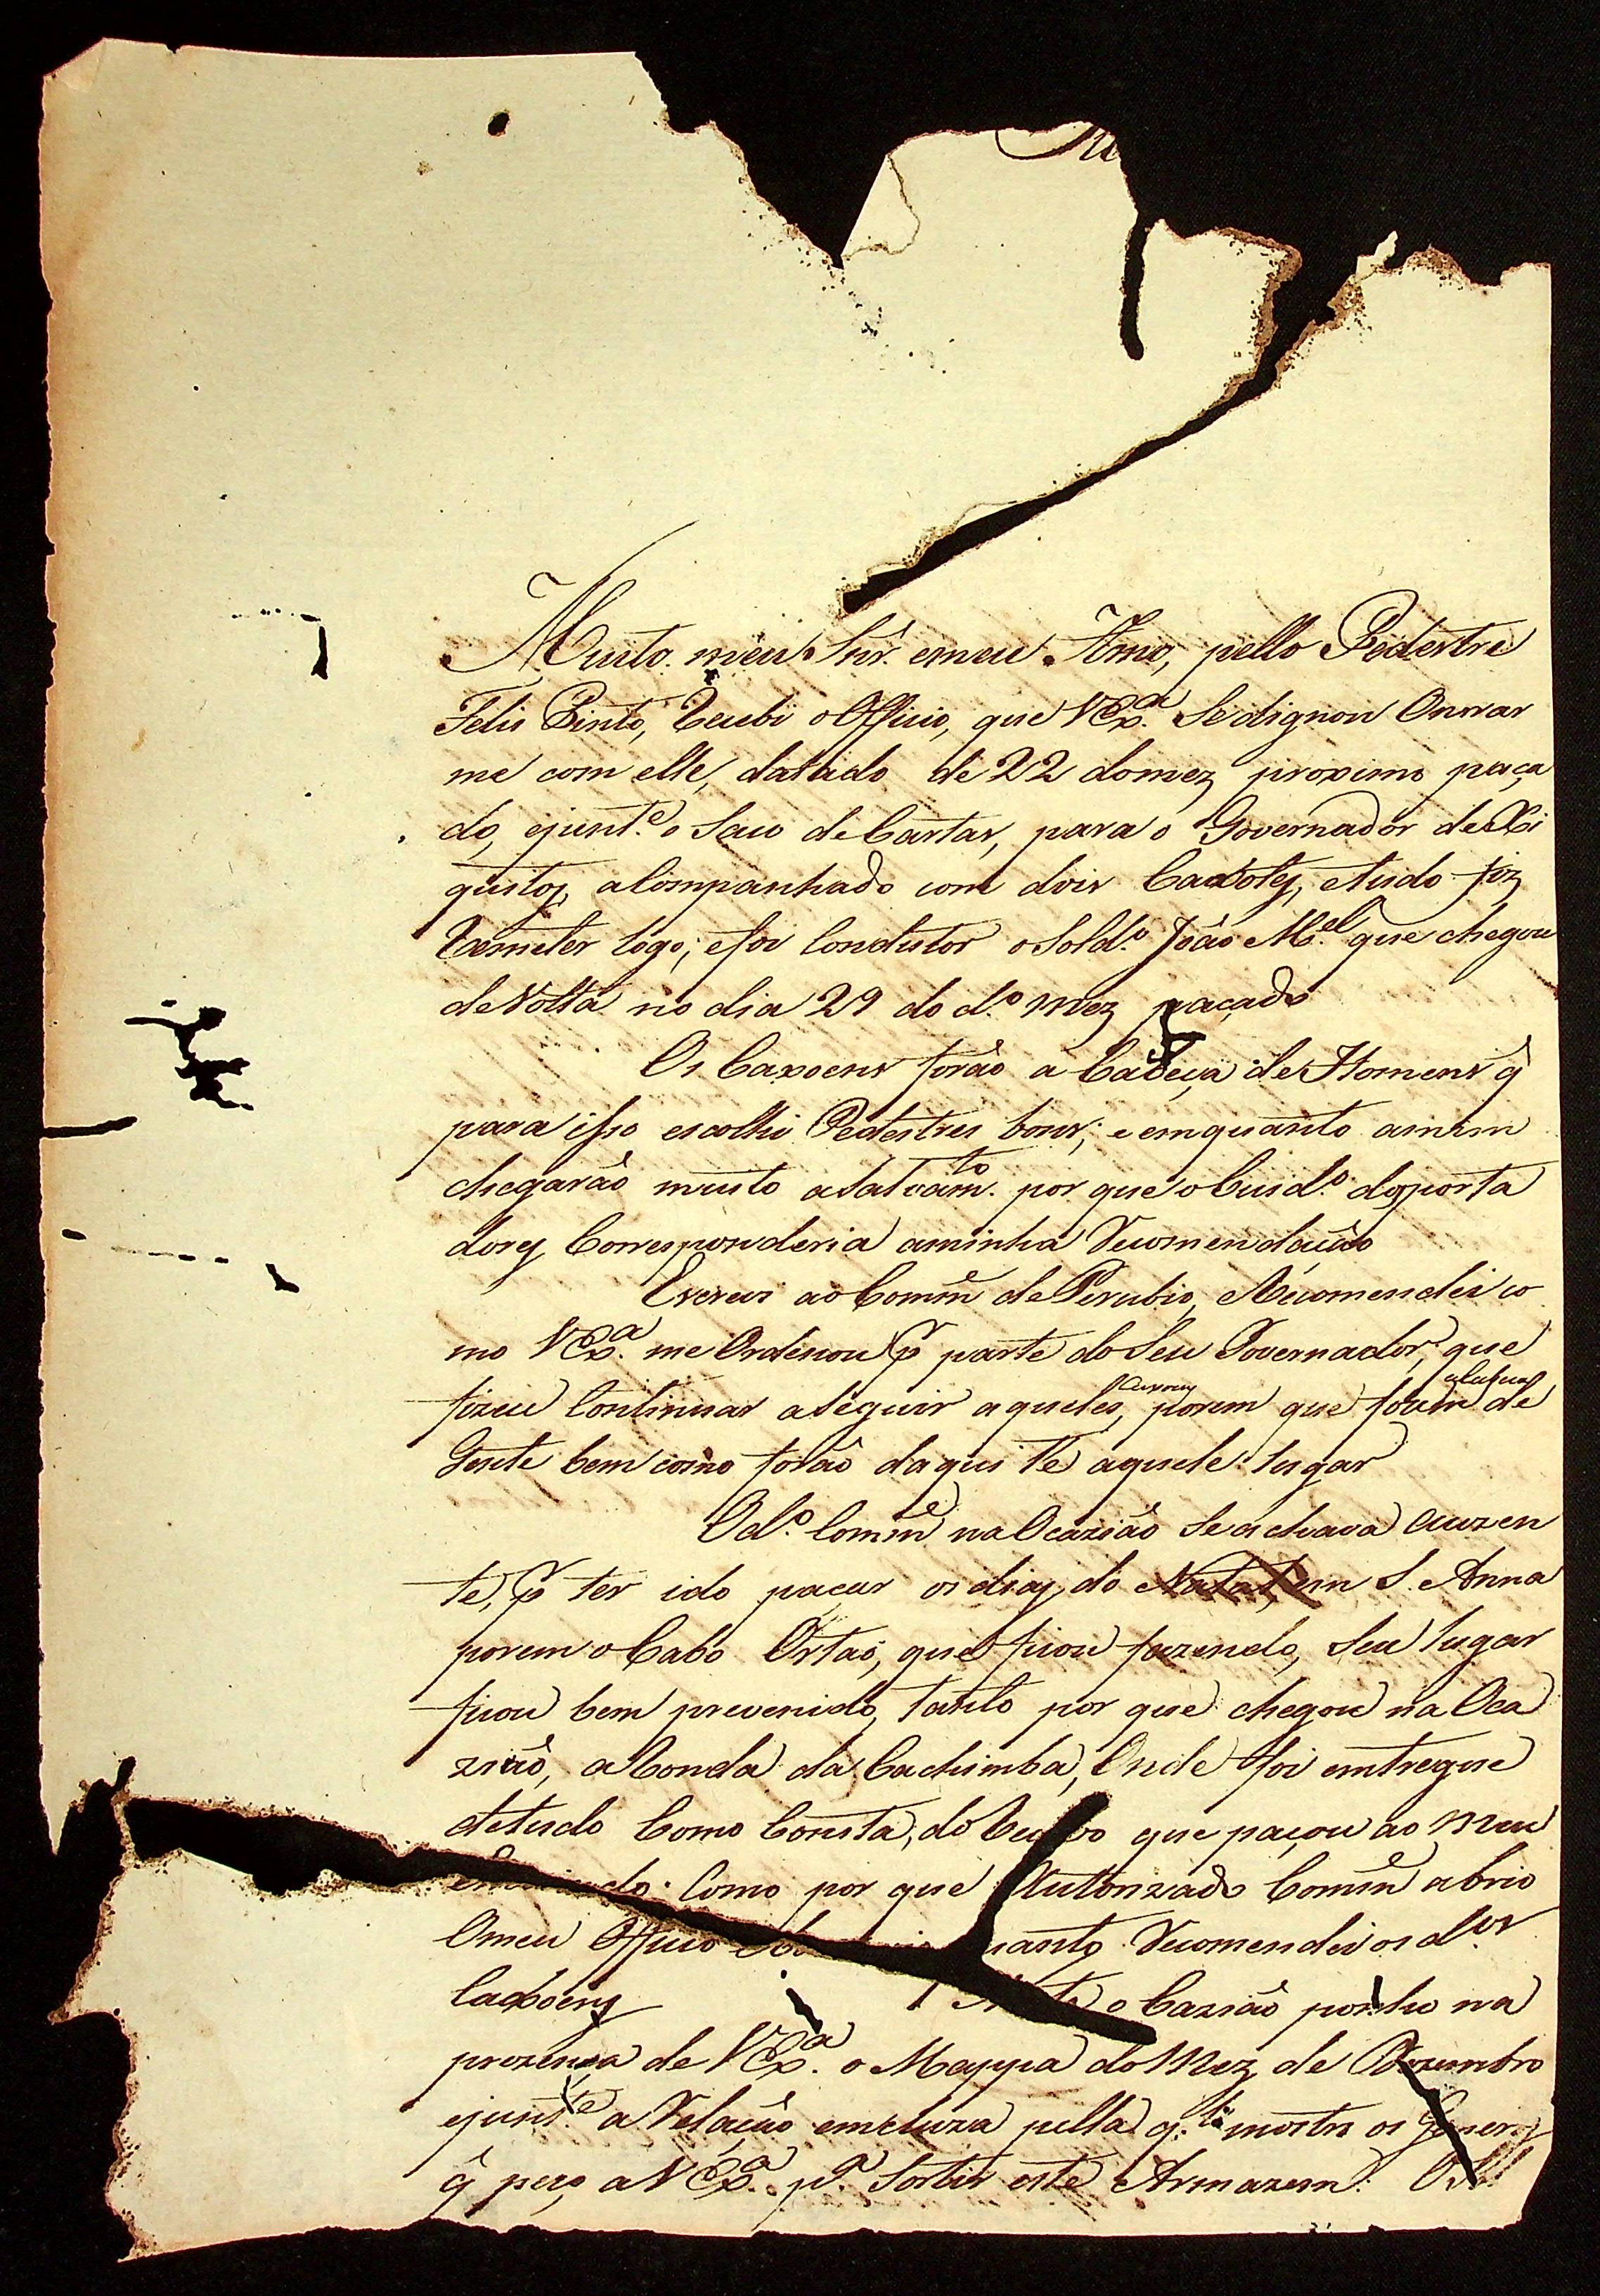 Muito meu Snr. emeu Amo, pello Pedestre
Felis Pinto, Recebi o Officio, que VExª. Se dignou Onrrar
me com elle, datado de 22 domez proximo paça
do, ejunt.e o Saco de Cartas, para o Governador de Xi
quitos, acompanhado com dois Caxotes, etudo fiz
Remeter logo; efoi Condutor o Sold.º João M.el que chegou
de Volta no dia 29 do d.º mez paçado
Os Caxoens forão a Cabeça de Homens q̃
para isso escolhi Pedestres bons; e emquanto amim
chegarão muito a salvam.to por que o Cuid.º dosporta
dores Corresponderia aminha Recomendação
Escrevi ao Comm.e de Perubio, e Recomendei co
mo VExª. me Ordenou p̃ parte do Seu Governador, que
fizece Continuar a Seguir aqueles Caxoens, porem que foce de
Gente bem como forão daqui té aquele lugar
Od.º Comm.e na Ocazião Se achava auzen
te, p̃ ter ido paçar os dias do Natal, em S. Anna
porem o Cabo Ortas, que ficou fazendo, Seu lugar
ficou bem prevenido, tanto por que chegou na Oca
zião, a Ronda da Cachimba, Onde foi emtregue
detudo Como Consta, do que paçou ao meu
Como por que Autorizado Comm.e abrio
Omeu Officio Recomendei os d.os
Caxoens o Cazião ponho na
prezença de VExª. o Mappa do Mez de Dezembro
ejunt.e a Relação emcluza pella q.l mostra os Generos
q̃ peço a VExª. p.ª Sortir este Armazem.